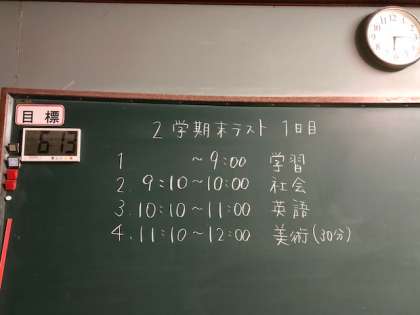 目標
2学期末テスト 1日目
1 ～9:00 学習
2. 9:10～10:00 社会
3. 10:10～11:00 英語
4. 11:10～12:00 美術(30分)